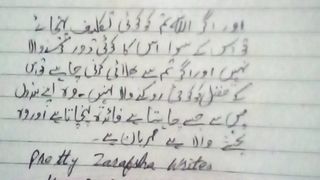 اور اگر اللہ تم کو کوئی تکلیف پہنچائے
تو اس کے سوا اس کا کوئی دور کرنے والا
نہیں اور اگر تم سے بھلائی کرنی چاہے تو اس
کے فضل کو کوئی روکنے والا نہیں۔ وہ اپنے بندوں
میں سے جسے چاہتا ہے فائدہ پہنچاتا ہے اور وہ
بخشنے والا ہے مہربان ہے۔
Pretty Zarafsha Writes